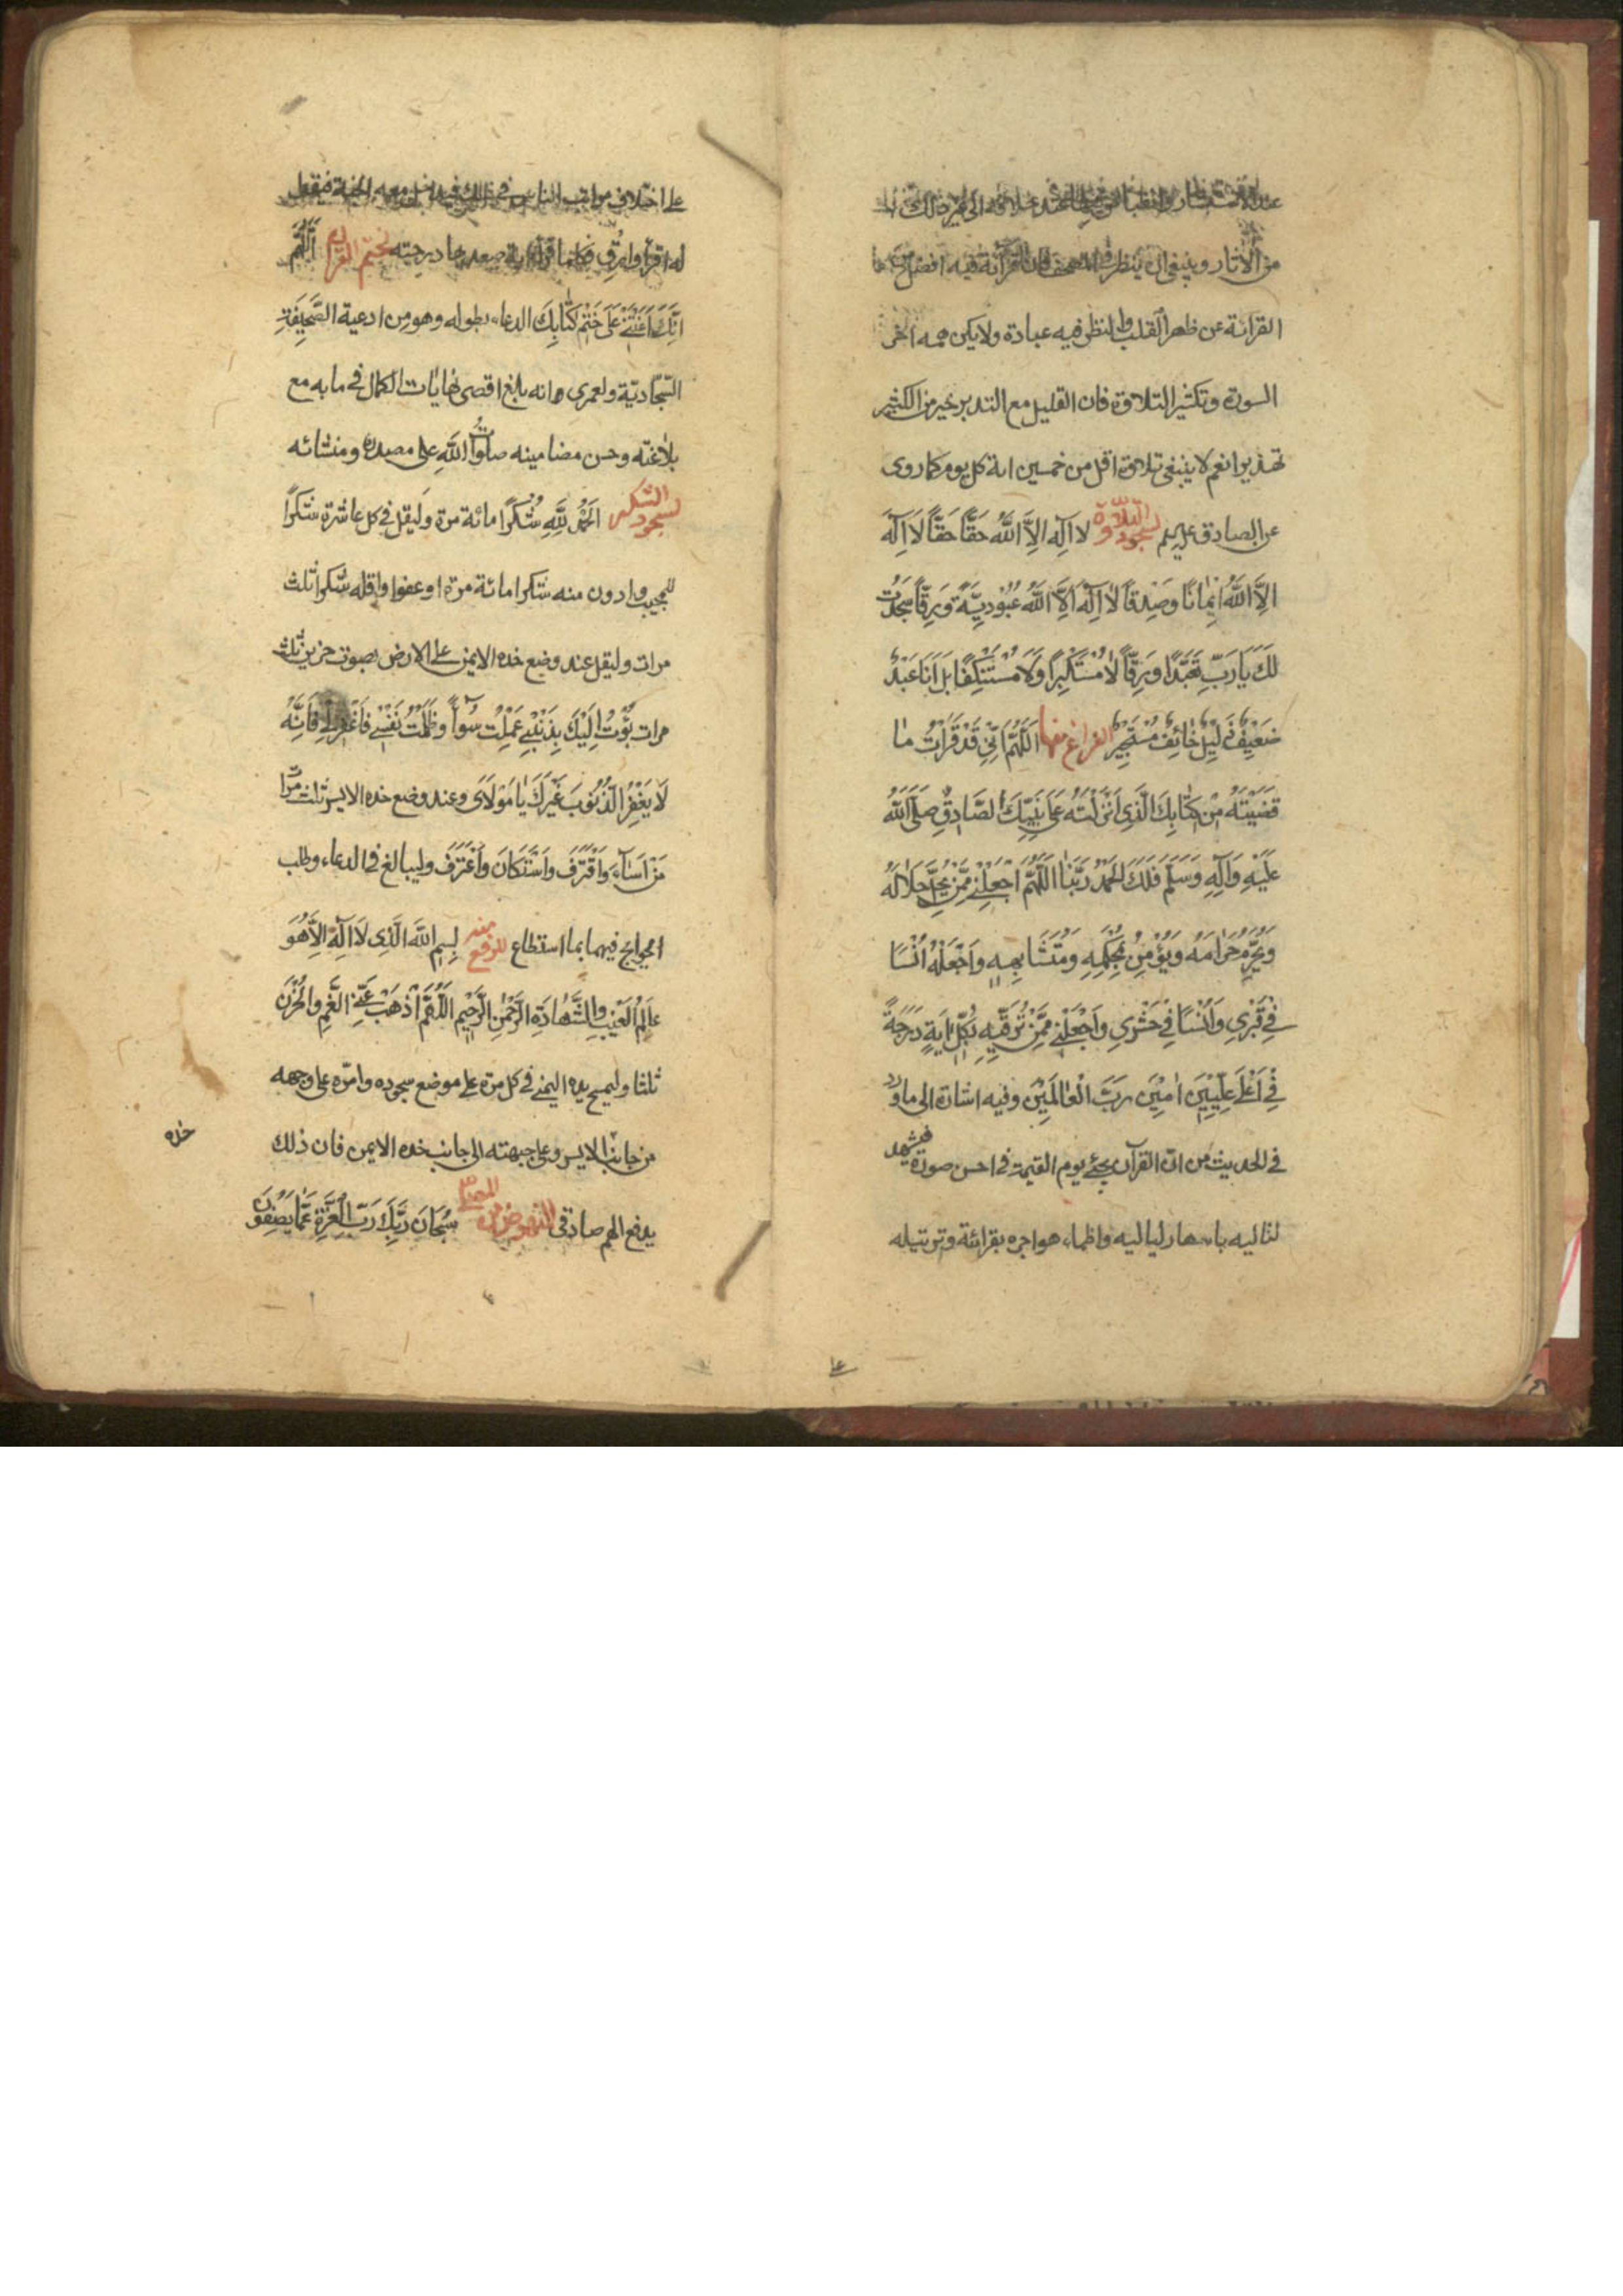 من الآثار وينبغي ان ينظر في المصحف فان القرائة فيه افضل من
القرائة عن ظهر القلب والنظر فيه عبادة ولا يكن همه اخر
السورة وتكثير التلاوة فان القليل مع التدبر خير من الكثير
تهذيرا نعم لا ينبغي تلاوة اقل من خمسين اية كل يوم كما روى
عن الصادق عليه السلم لسجود التلاوة لا اله الا الله حقا حقا لا اله
الا الله ايمانا وصدقا لا اله الا الله عبودية ورقا سجدت
لك يا رب تعبدا ورقا لا مستكبرا ولا مستنكفا بل انا عبد
ضعيف ذليل خائف مستجير الفراغ منها اللهم اني قد قرات ما
قضيته من كتابك الذي انزلته على نبيك الصادق صلى الله
عليه وآله وسلم فلك الحمد ربنا اللهم اجعلني ممن يحل حلاله
ويحرم حرامه ويؤمن بمحكمه ومتشابهه واجعله انسا
في قبري وانسا في حشري واجعلني ممن ترقيه بكل اية درجة
في اعلى عليين امين رب العالمين وفيه اشارة الى ما ورد
في الحديث من ان القرآن يجئ يوم القيمة في احسن صورة فيشهد
لتاليه باسهار لياليه واظماء هواجره بقرائته وترتيله
على اختلاف مراتب الناس في ذلك فيدخل معه الجنة فيقول
له اقرأ وارق فكلما قرأ اية صعد بها درجته لختم القران اللهم
انك اعنتني على ختم كتابك الدعاء بطوله وهو من ادعية الصحيفة
السجادية ولعمري وانه بلغ اقصى نهايات الكمال في مابه مع
بلاغته وحسن مضامينه صلوات الله على مصدره ومنشائه
لسجود الشكر الحمد لله شكرا مائة مرة وليقل في كل عاشرة شكرا
للمجيب وادون منه شكرا مائة مرة او عفوا واقله شكرا ثلث
مرات وليقل عند وضع خده الايمن على الارض بصوت حزين ثلث
مرات بؤت اليك بذنبي عملت سوأ وظلمت نفسي فاغفر لي فانه
لا يغفر الذنوب غيرك يا مولاي وعند وضع خده الايسر ثلث مرات
من اساء واقترف واستكان واعترف وليبالغ في الدعاء وطلب
الحوايج فيهما بما استطاع للرفع منه بسم الله الذي لا اله الا هو
عالم الغيب والشهادة الرحمن الرحيم اللهم اذهب عني الغم والحزن
ثلثا وليمسح يده اليمنى في كل مرة على موضع سجوده وامره على وجهه
من جانب الايسر وعلى جبهته الى جانب خده الايمن فان ذلك
خده
يدفع الهم صادقي للنهوض من المصلى سبحان ربك رب العزة عما يصفون